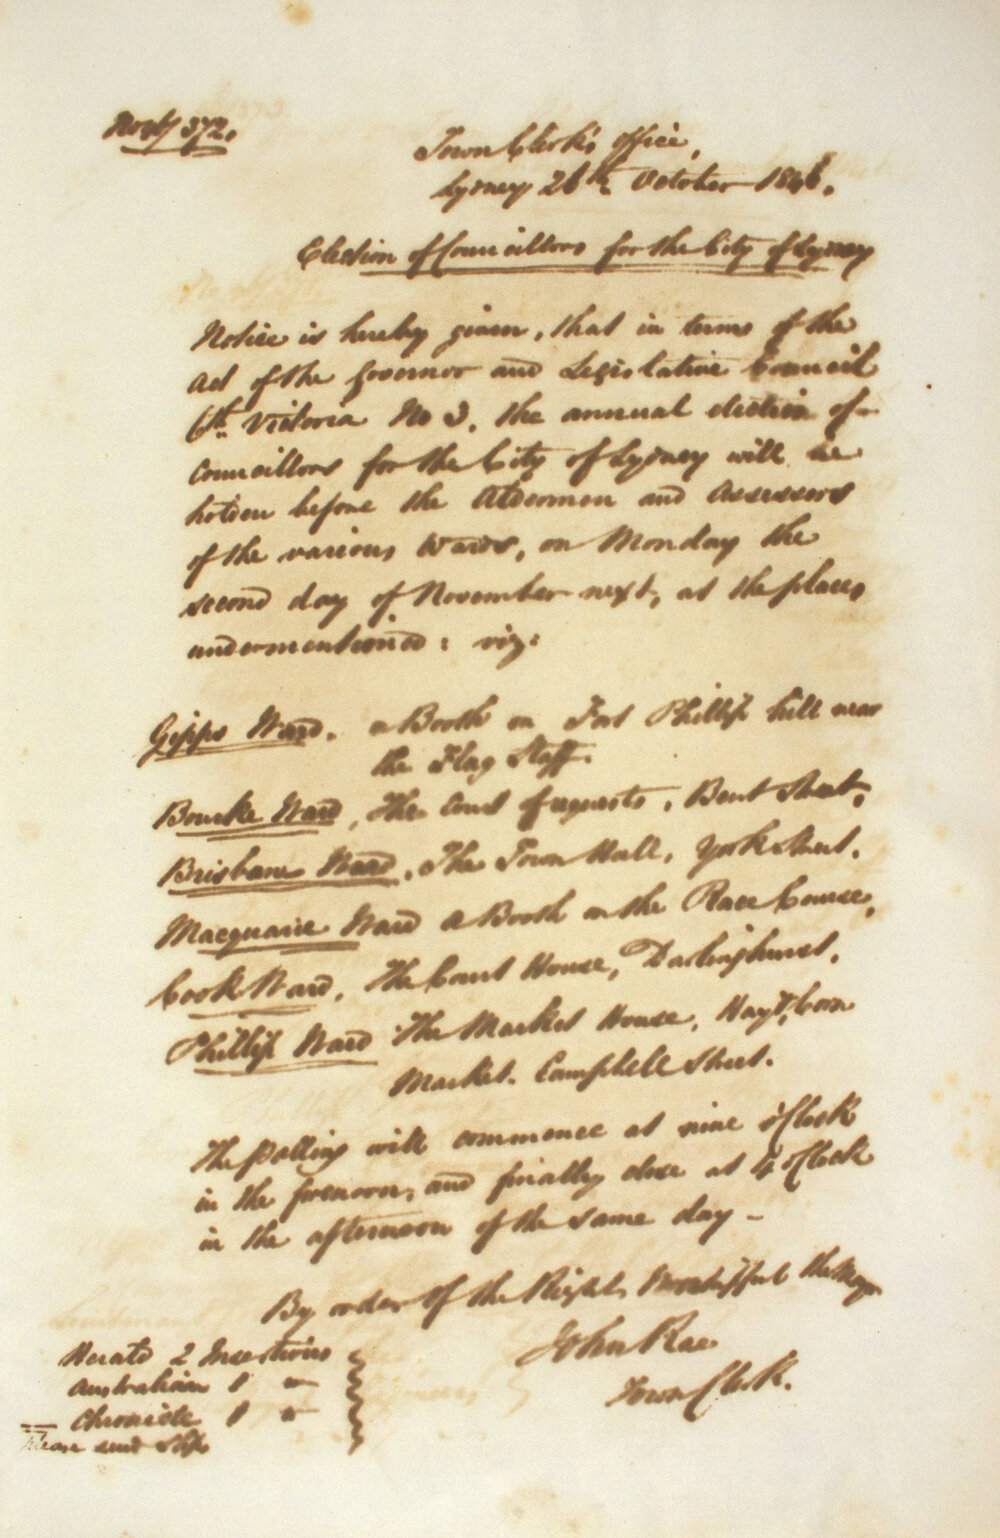 No 372.
Town Clerk's Office,
Sydney 26th October 1846.
Election of Councillors for the City of Sydney
Notice is hereby given, that in terms of the
Act of the Governor and Legislative Council
6th Victoria No 3, the annual election of
Councillors for the City of Sydney will be
holden before the Aldermen and Assessors
of the various Wards, on Monday the
second day of November next, at the places
undermentioned: viz:
Gipps Ward. a Booth on Fort Phillip hill near
the Flag Staff.
Bourke Ward, The Court of requests, Bent Street,
Brisbane Ward. The Town Hall, York Street.
Macquarie Ward a Booth on the Race Course,
Cook Ward, The Court House, Darlinghurst.
Phillip Ward The Market House, Hay & Corn
Market. Campbell Street.
The polling will commence at nine o'Clock
in the forenoon, and finally close at 4 o'Clock
in the afternoon of the same day —
By order of the Right Worshipful the Mayor
John Rae
Town Clerk.
Herald 2 Insertions
Australian 1 "
Chronicle 1 "
Please send slips